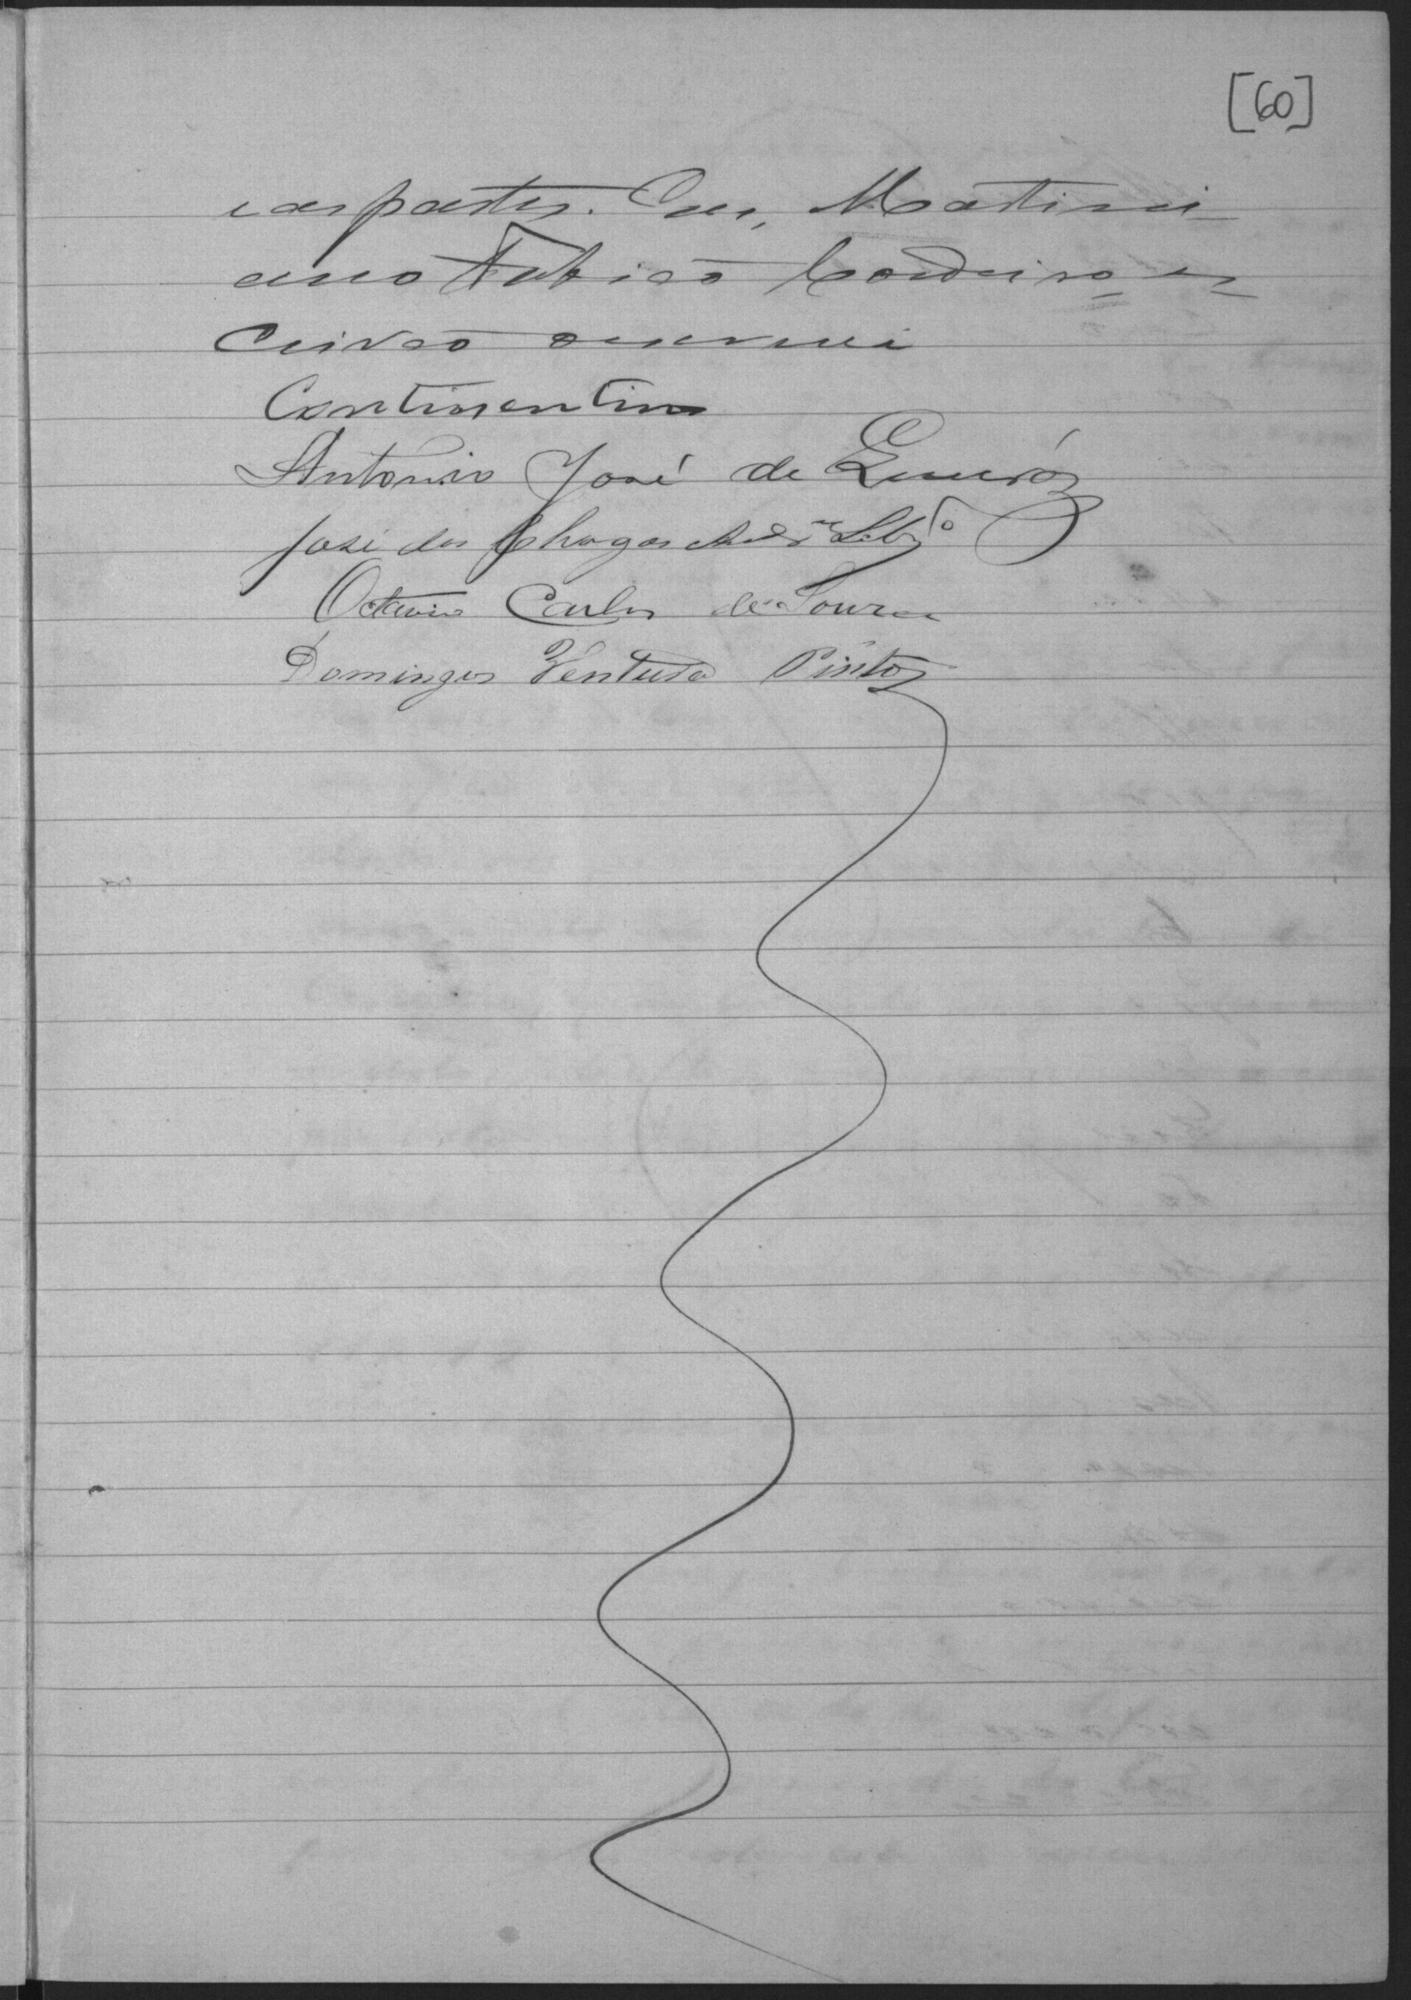 [60]
e as partes. Eu, Martini
ano Fabião Cordeiro es
crivão escrevi
Constinentino
Antonio José de Queiróz
José das Chagas
Octavio Carlos de Souza
Domingos Ventura Pinto